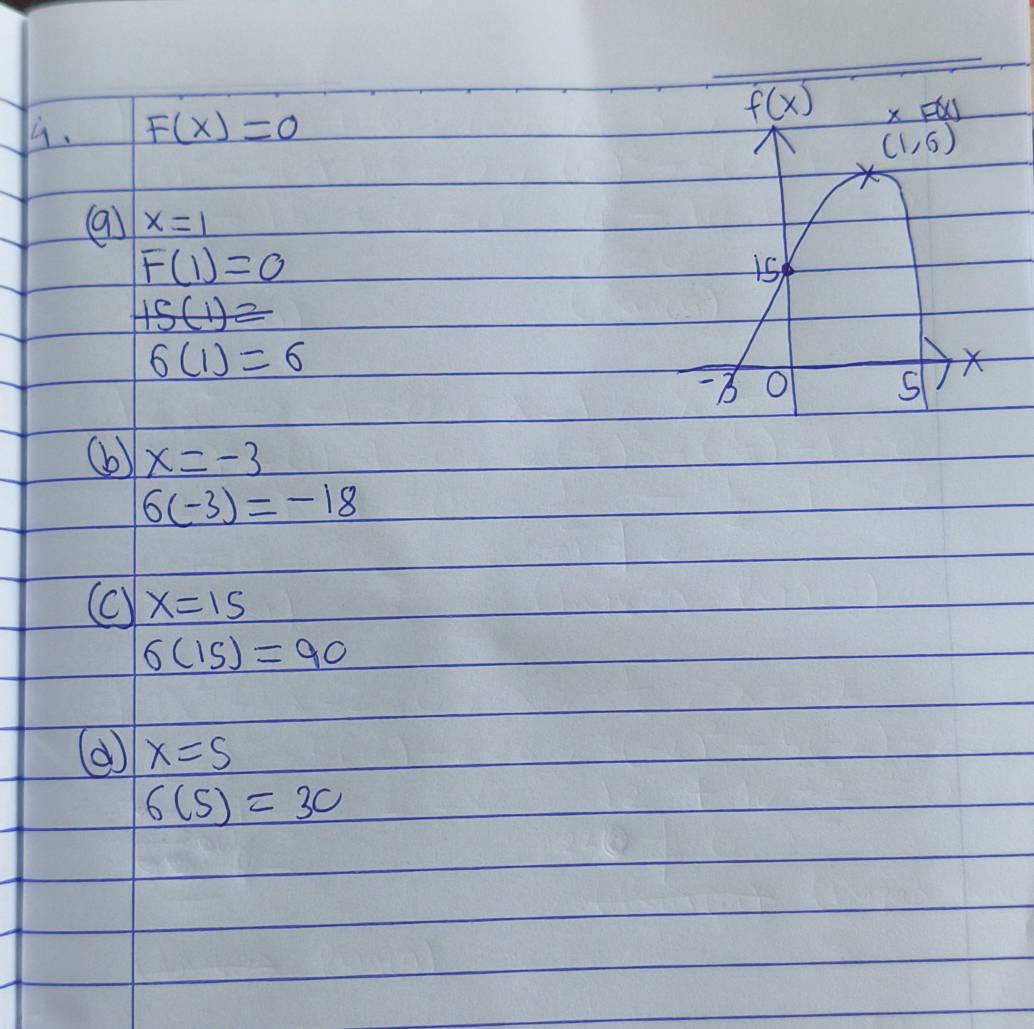 4. F(x) = 0
f(x)
x F(x)
(1,6)
(a) x = 1
F(1) = 0
15(1) =
6(1) = 6
15
-3 0 5 x
(b) x = -3
6(-3) = -18
(c) x = 15
6(15) = 90
(d) x = 5
6(5) = 30